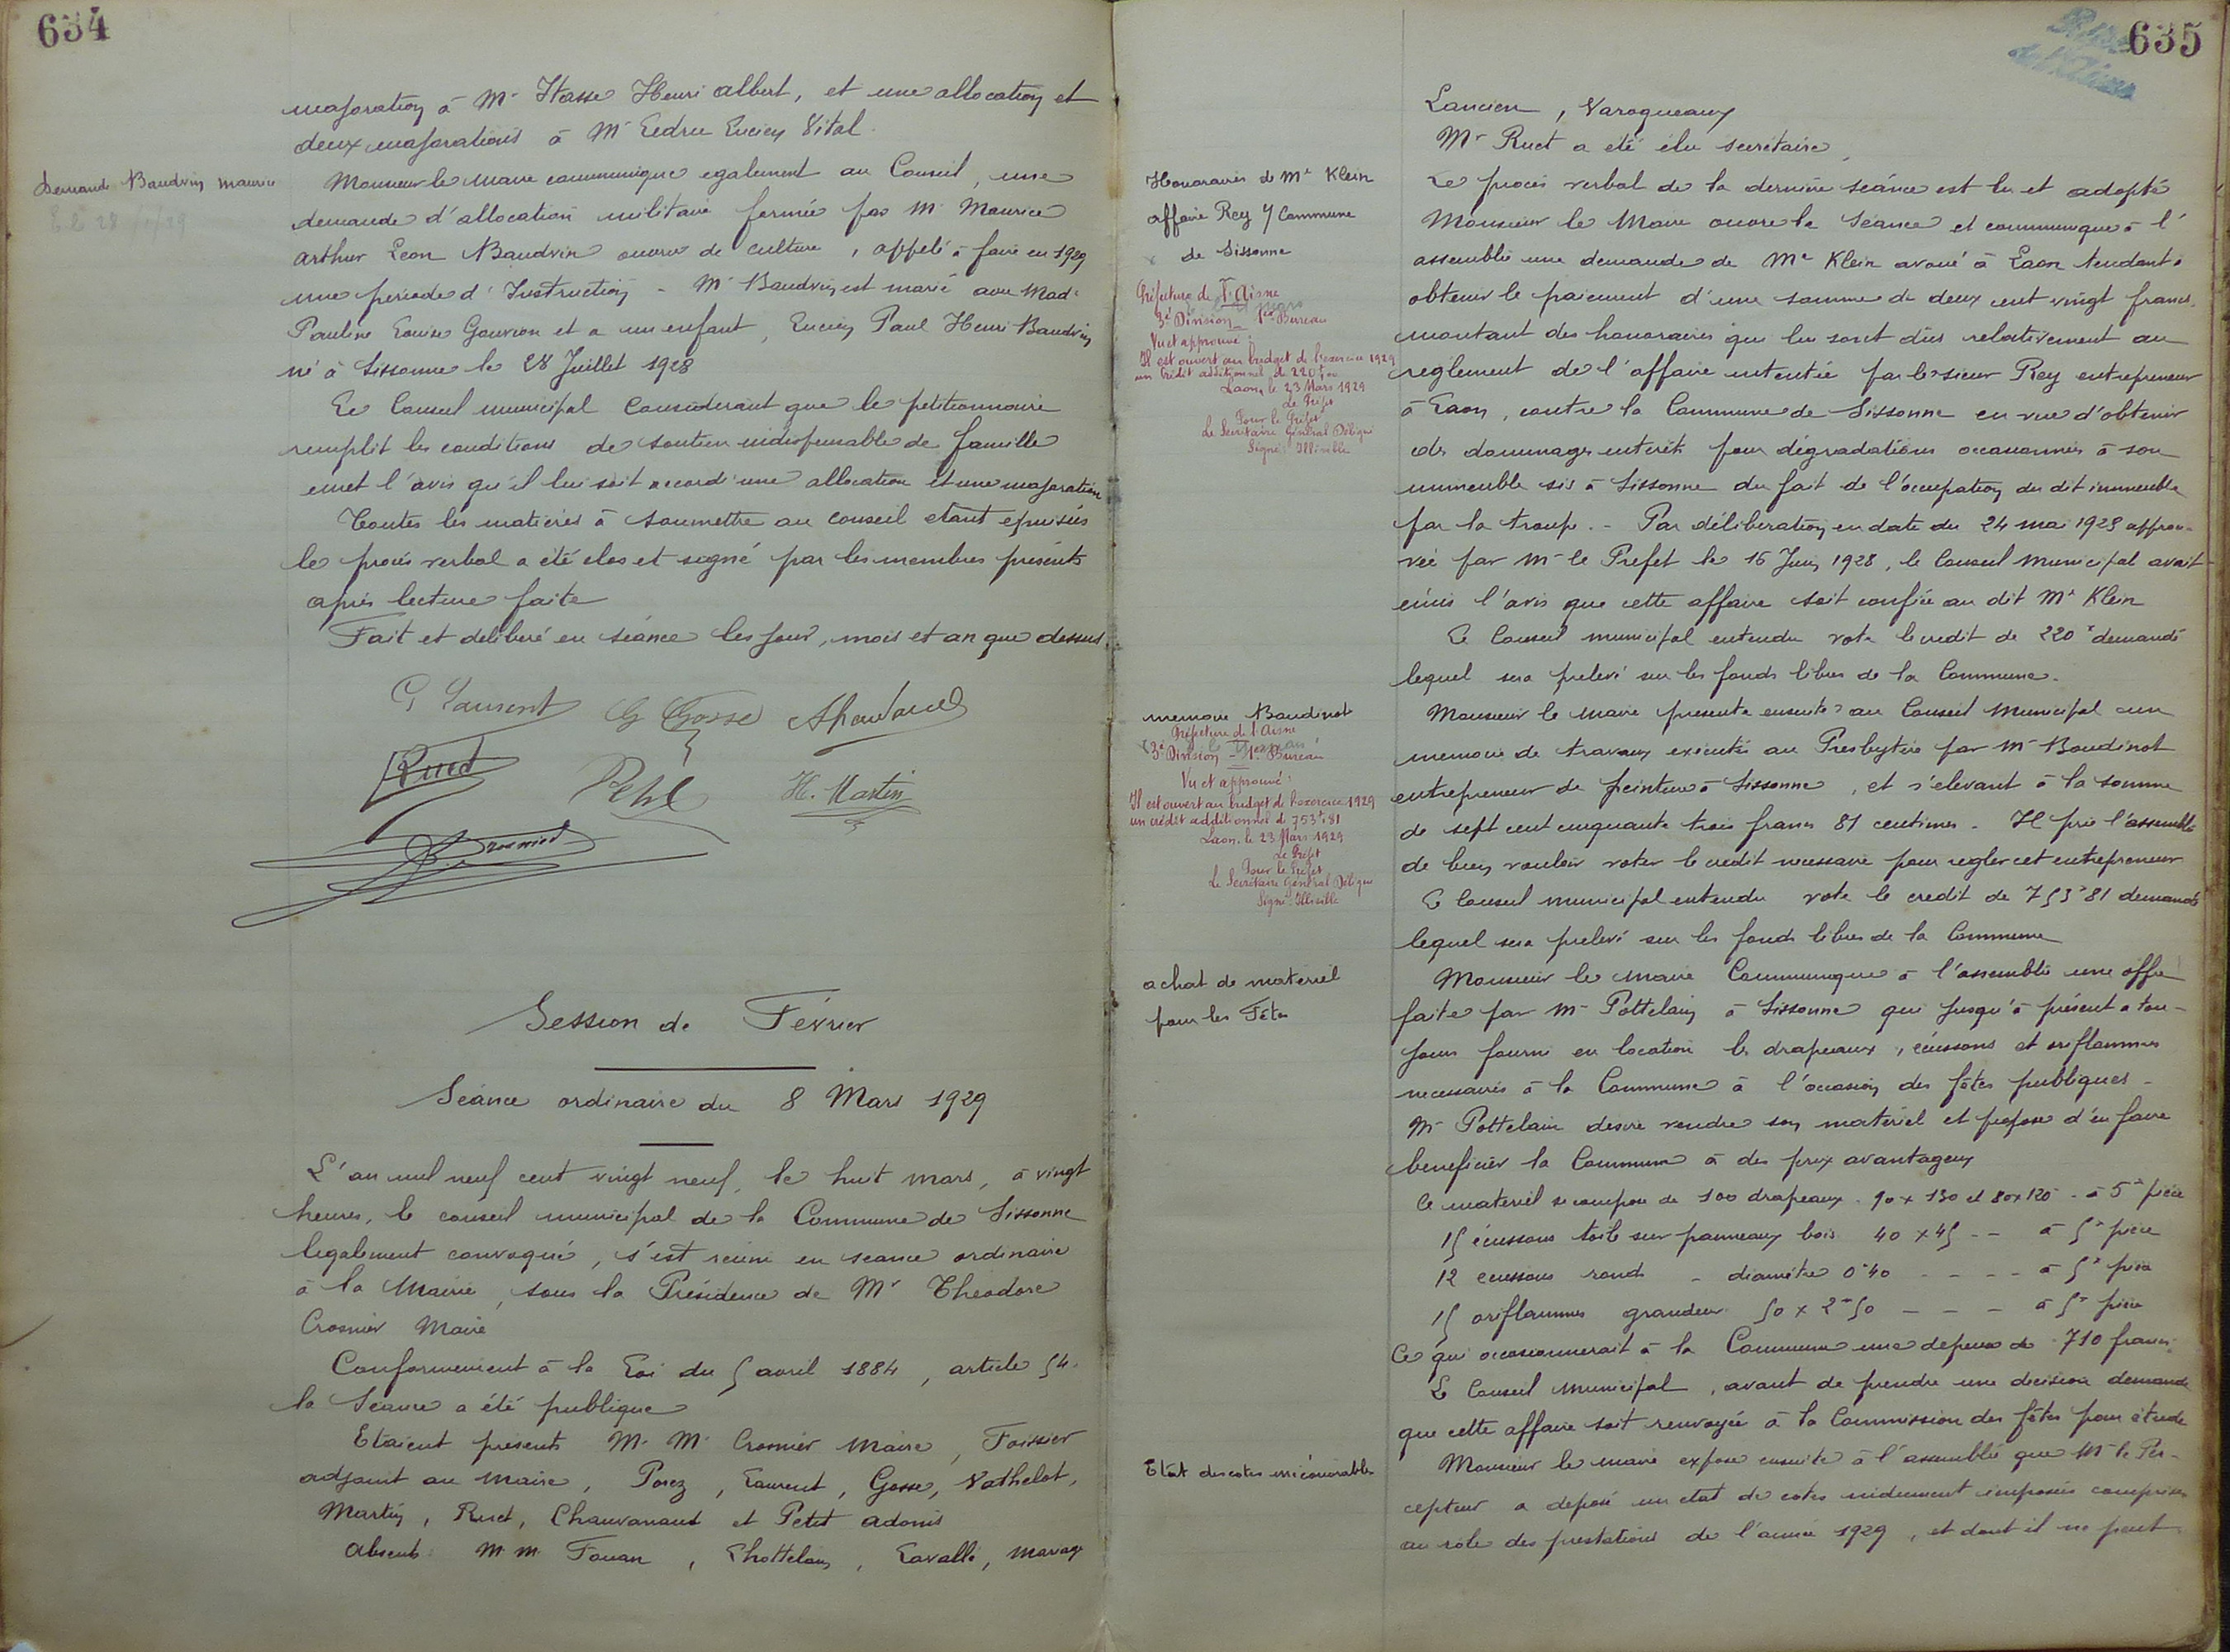 634
majoration à Mr Hasse Henri Albert, et une allocation et
deux majorations à Mr Ledru Lucien Vital.
Demande Baudvin Maurice
Monsieur le Maire communique egalement au Conseil, une
demande d'allocation militaire formée par Mr Maurice
Arthur Leon Baudvin ouvrier de culture, appelé à faire en 1929
une periode d'Instruction - Mr Baudvin est marié avec Made
Pauline Louise Gouvion et a un enfant, Lucien Paul Henri Baudvin
né à Sissonne le 28 Juillet 1928
Le Conseil municipal Considerant que le petitionnaire
remplit les conditions de soutien indispensable de famille
emet l'avis qu'il lui soit accordé une allocation et une majoration
Toutes les matières à soumettre au conseil etant epuisées
le procès verbal a été clos et signé par les membres présents
après lecture faite
Fait et deliberé en séance les jour, mois et an que dessus.
G Laurent G Gosse AChauvanaud
Ruet Petit H. Martin
Crosnier
Session de Février
Séance ordinaire du 8 Mars 1929
L'an mil neuf cent vingt neuf, le huit mars, à vingt
heures, le conseil municipal de la Commune de Sissonne
legalement convoqué, s'est réuni en seance ordinaire
à la Mairie, sous la Présidence de Mr Theodore
Crosnier Maire
Conformement à la Loi du 5 avril 1884, article 54.
la Séance a été publique
Etaient présents M. M. Crosnier Maire, Foissier
adjoint au Maire, Porez, Laurent, Gosse, Vathelot,
Martin, Ruet, Chauvanaud et Petit Adonis
Absents M M Fouan, Chottelain, Lavallé,
635
Lancien, Varoqueaux
Mr Ruet a été élu secrétaire,
Le procès verbal de la dernière séance est lu et adopté
Honoraires de Me Klein
affaire Rey c/ Commune
de Sissonne
Monsieur le Maire ouvre la Séance et communique à l'
assemblée une demande de Me Klein avoué à Laon tendant à
obtenir le paiement d'une somme de deux cent vingt francs.
montant des honoraires qui lui sont dûs relativement au
règlement de l'affaire intentée par le sieur Rey entrepreneur
à Laon, contre la Commune de Sissonne en vue d'obtenir
des dommages interêts pour dégradations occasionnées à son
immeuble sis à Sissonne du fait de l'occupation du dit immeuble
par la troupe. - Par déliberation en date du 24 mai 1928 approu-
vée par Mr le Prefet le 15 Juin 1928, le Conseil Municipal avait
émis l'avis que cette affaire soit confiée au dit Me Klein
Le Conseil municipal entendu vote le credit de 220f demandé
lequel sera prelevé sur les fonds libres de la Commune.
Préfecture de l'Aisne
3e Division 1er Bureau
Vu et approuvé:
Il est ouvert au budget de l'exercice 1929
un crédit additionnel de 220f 00
Laon, le 23 Mars 1929
Le Préfet
Pour le Préfet
Le Secrétaire Général Délégué
Signé: Illisible
memoire Baudinot
Préfecture de l'Aisne
3e Division 1er Bureau
Vu et approuvé:
Il est ouvert au budget de l'exercice 1929
un crédit additionnel de 753f,81
Laon, le 23 Mars 1929
Le Préfet
Pour le Préfet
Le Secrétaire Général Délégué
Signé: Illisible
Monsieur le Maire presente ensuite au Conseil Municipal un
memoire de travaux executés au Presbytère par Mr Baudinot
entrepreneur de peinture à Sissonne, et s'elevant à la somme
de sept cent cinquante trois francs 81 centimes. Il prie l'assemblée
de bien vouloir voter le credit necessaire pour regler cet entrepreneur
Le Conseil municipal entendu vote le credit de 753f81 demandé
lequel sera prelevé sur les fonds libres de la Commune
achat de matériel
pour les Fêtes
Monsieur le Maire Communique à l'assemblée une offre
faite par Mr Pottelain à Sissonne qui jusqu'à présent a tou-
jours fourni en location les drapeaux, écussons et oriflammes
necessaires à la Commune à l'occasion des fêtes publiques -
Mr Pottelain desire vendre son matériel et propose d'en faire
beneficier la Commune à des prix avantageux
Ce materiel se compose de 100 drapeaux. 90 x 130 et 80 x 120 - à 5f pièce
15 écussons toile sur panneaux bois 40 x 45 - - à 5f pièce
12 ecussons ronds - diamètre 0m40 - - - - à 5f pièce
15 oriflammes grandeur 50 x 2m50 - - - à 5f pièce
Ce qui occasionnerait à la Commune une depense de 710 francs.
Le Conseil Municipal, avant de prendre une decision demande
que cette affaire soit renvoyée à la Commission des fêtes pour étude
Etat des cotes irrécouvrables
Monsieur le maire expose ensuite à l'assemblée que Mr le Per-
cepteur a deposé un etat de cotes indûment imposées comprises
au rôle des prestations de l'année 1929, et dont il ne peut